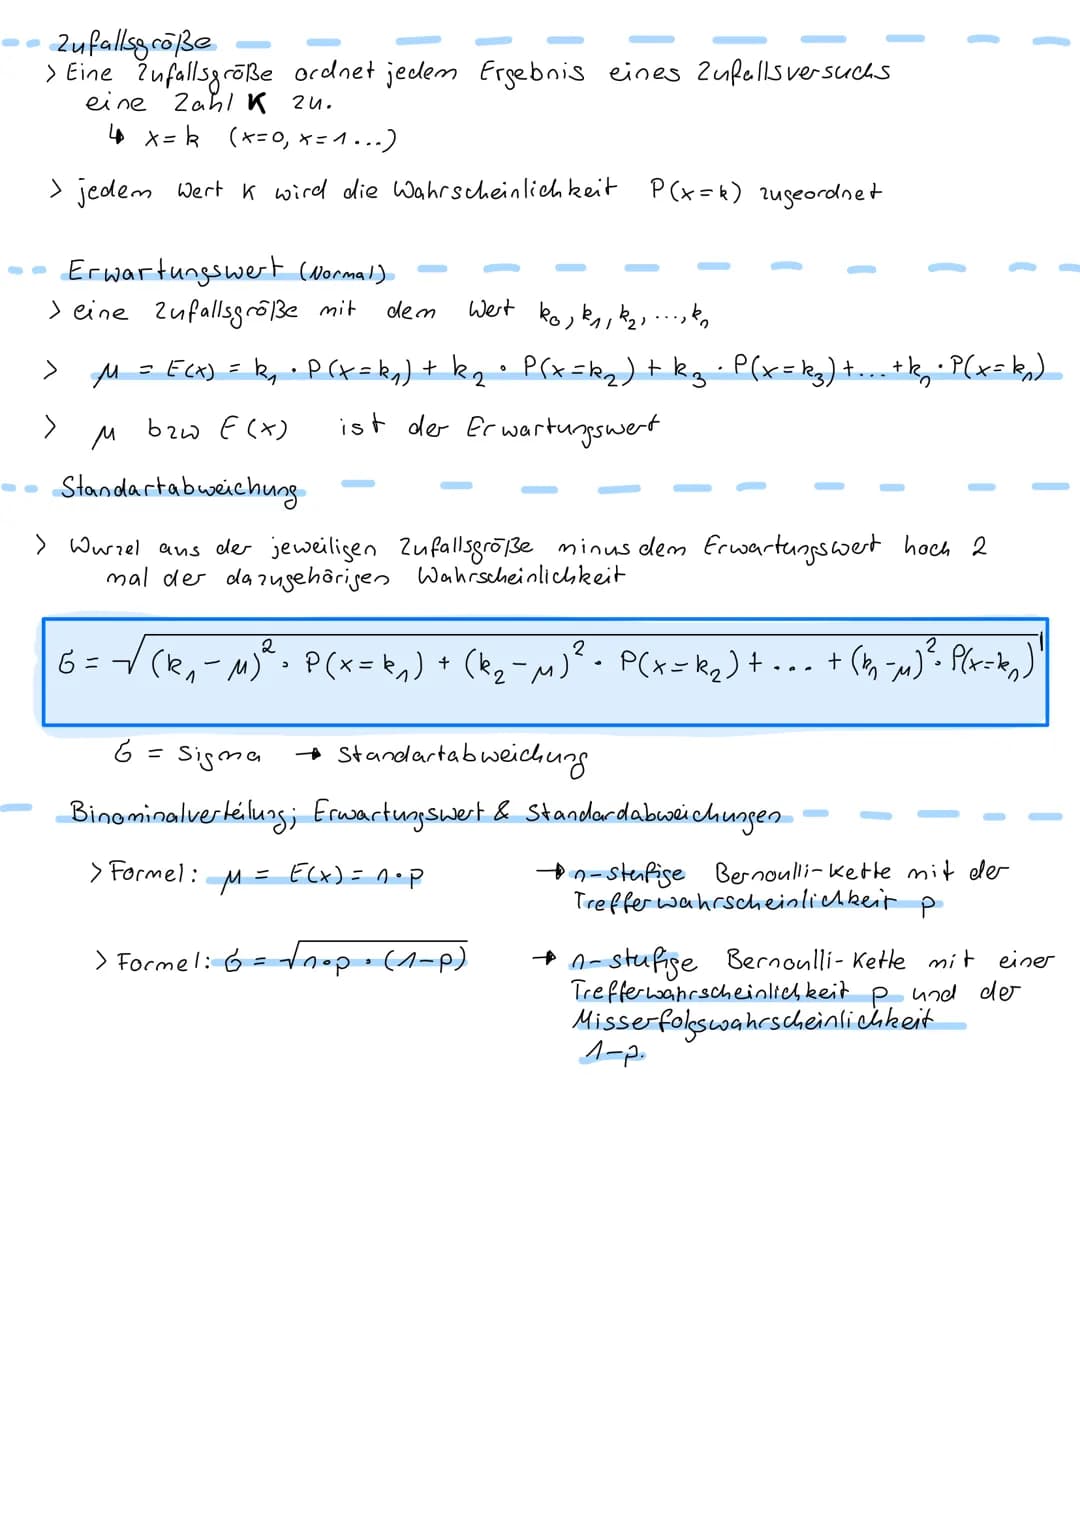 Zufallsgröße
> Eine Zufallsgröße ordnet jedem Ergebnis eines Zufallsversuchs
eine Zahl K zu.
↳ x=k (x=0, x=1...)
> jedem Wert K wird die Wahrscheinlichkeit P(x=k) zugeordnet
Erwartungswert (Normal)
> eine Zufallsgröße mit dem Wert k₀, k₁, k₂, ..., kₙ
> μ = E(x) = k₁ · P(x=k₁) + k₂ · P(x=k₂) + k₃ · P(x=k₃) + ... + kₙ · P(x=kₙ)
> μ bzw E(x) ist der Erwartungswert
Standartabweichung
> Wurzel aus der jeweiligen Zufallsgröße minus dem Erwartungswert hoch 2
mal der dazugehörigen Wahrscheinlichkeit
σ = √(k₁-μ)² · P(x=k₁) + (k₂-μ)² · P(x=k₂) + ... + (kₙ-μ)² · P(x=kₙ)
σ = Sigma → Standartabweichung
Binominalverteilung; Erwartungswert & Standardabweichungen
> Formel: μ = E(x) = n·p → n-stufige Bernoulli-Kette mit der
Trefferwahrscheinlichkeit p
> Formel: σ = √n·p·(1-p) → n-stufige Bernoulli-Kette mit einer
Trefferwahrscheinlichkeit p und der
Misserfolgswahrscheinlichkeit
1-p.